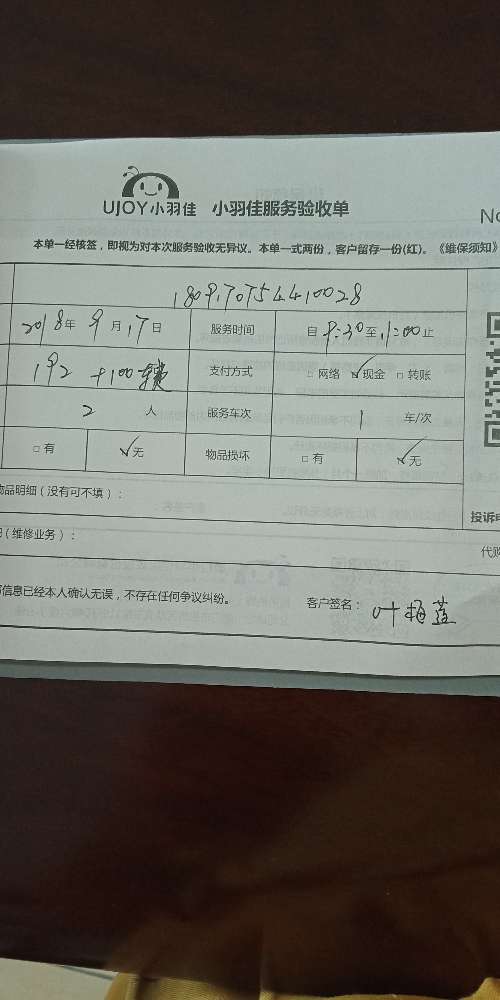 UJOY小羽佳 小羽佳服务验收单
No
本单一经核签，即视为对本次服务验收无异议。本单一式两份，客户留存一份(红)。《维保须知》
2018年 9月17日 服务时间 自 9:30 至 11:00 止
192 +100 支付方式 □网络 ☑现金 □转账
2 人 服务车次 1 车/次
□有 ☑无 物品损坏 □有 ☑无
物品明细（没有可不填）：
投诉电
(维修业务)：
代购
信息已经本人确认无误，不存在任何争议纠纷。 客户签名：